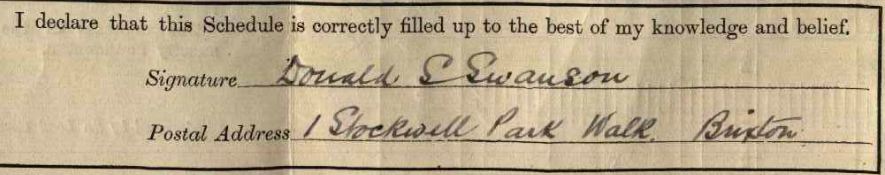 I declare that this Schedule is correctly filled up to the best of my knowledge and belief.
Signature Donald S Swanson
Postal Address 1 Stockwell Park Walk. Brixton